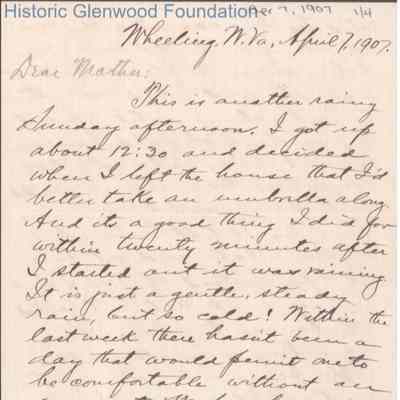 Historic Glenwood Foundation
Apr 7, 1907 1/4
Wheeling, W. Va., April 7, 1907.
Dear Mother:
This is another rainy
Sunday afternoon. I got up
about 12:30 and decided
when I left the house that I'd
better take an umbrella along.
And its a good thing I did for
within twenty minutes after
I started out it was raining
It is just a gentle, steady
rain, but so cold! Within the
last week there hasn't been a
day that would permit one to
be comfortable without an